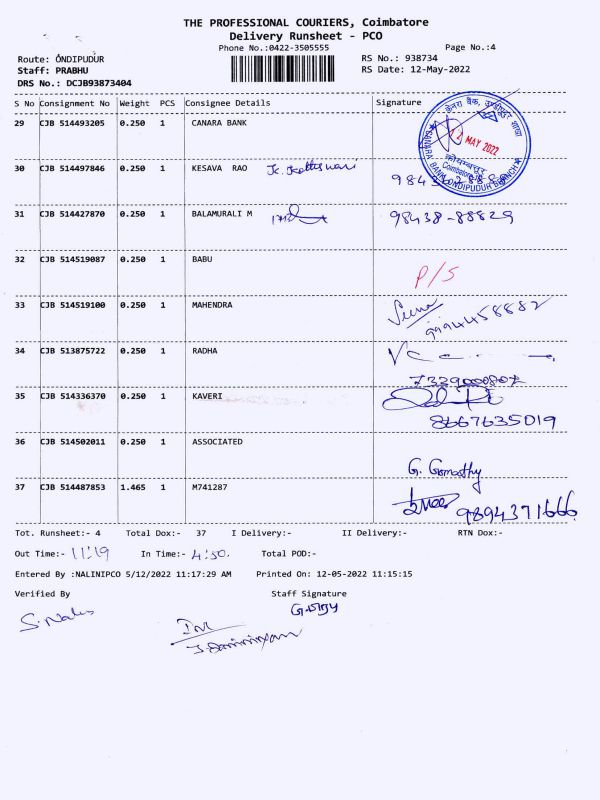 THE PROFESSIONAL COURIERS, Coimbatore
Delivery Runsheet - PCO
Phone No.:0422-3505555
Page No.:4
Route: ONDIPUDUR
RS No.: 938734
Staff: PRABHU
RS Date: 12-May-2022
DRS No.: DCJB93873404
S No Consignment No Weight PCS Consignee Details Signature
29 CJB 514493205 0.250 1 CANARA BANK
केनरा बैंक,
MAY 2022
कोयम्बत्तूर
Coimbatore
CANARA BANK, ONDIPUDUR BRANCH
30 CJB 514497846 0.250 1 KESAVA RAO
31 CJB 514427870 0.250 1 BALAMURALI M 98438-88829
32 CJB 514519087 0.250 1 BABU P/S
33 CJB 514519100 0.250 1 MAHENDRA 9994458882
34 CJB 513875722 0.250 1 RADHA
35 CJB 514336370 0.250 1 KAVERI 8667635019
36 CJB 514502011 0.250 1 ASSOCIATED G. Gomathy
37 CJB 514487853 1.465 1 M741287 9894371666
Tot. Runsheet:- 4 Total Dox:- 37 I Delivery:- II Delivery:- RTN Dox:-
Out Time:- 11:19 In Time:- 4:50. Total POD:-
Entered By :NALINIPCO 5/12/2022 11:17:29 AM Printed On: 12-05-2022 11:15:15
Verified By Staff Signature